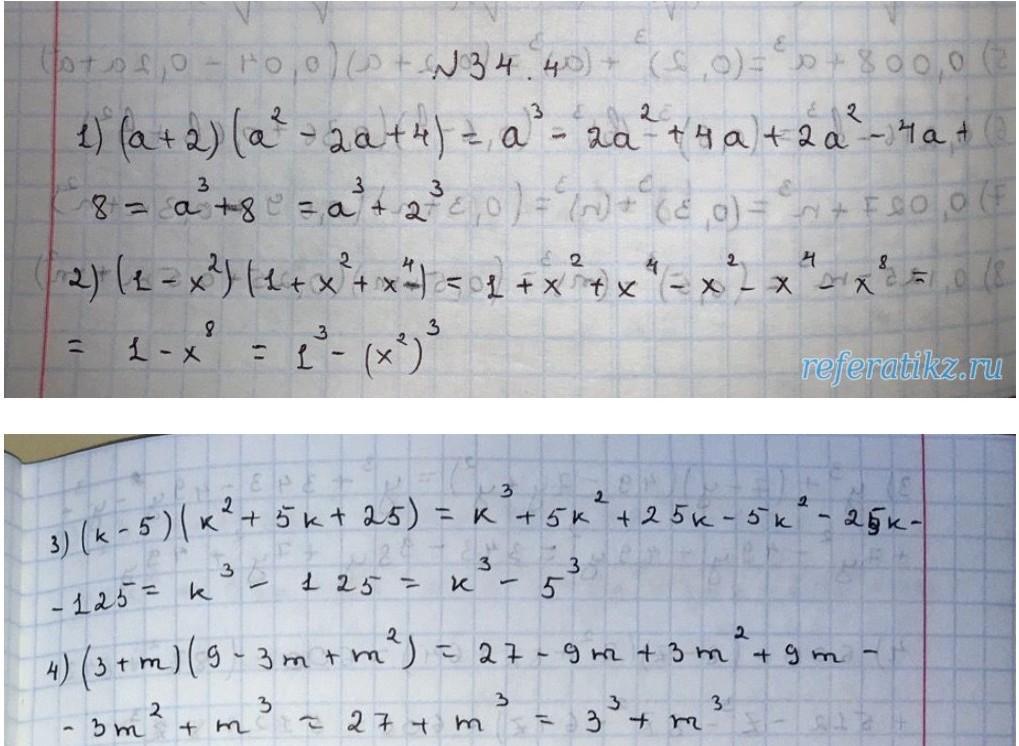 №34.4
1) (a+2)(a² - 2a+4) = a³ - 2a² + 4a + 2a² - 4a +
8 = a³ + 8 = a³ + 2³
2) (1 - x²) (1 + x² + x⁴) = 1 + x² + x⁴ - x² - x⁴ - x⁸ =
= 1 - x⁸ = 1³ - (x²)³
referatikz.ru
3) (k - 5)(k² + 5k + 25) = k³ + 5k² + 25k - 5k² - 25k -
-125 = k³ - 125 = k³ - 5³
4) (3+m)(9 - 3m + m²) = 27 - 9m + 3m² + 9m -
- 3m² + m³ = 27 + m³ = 3³ + m³